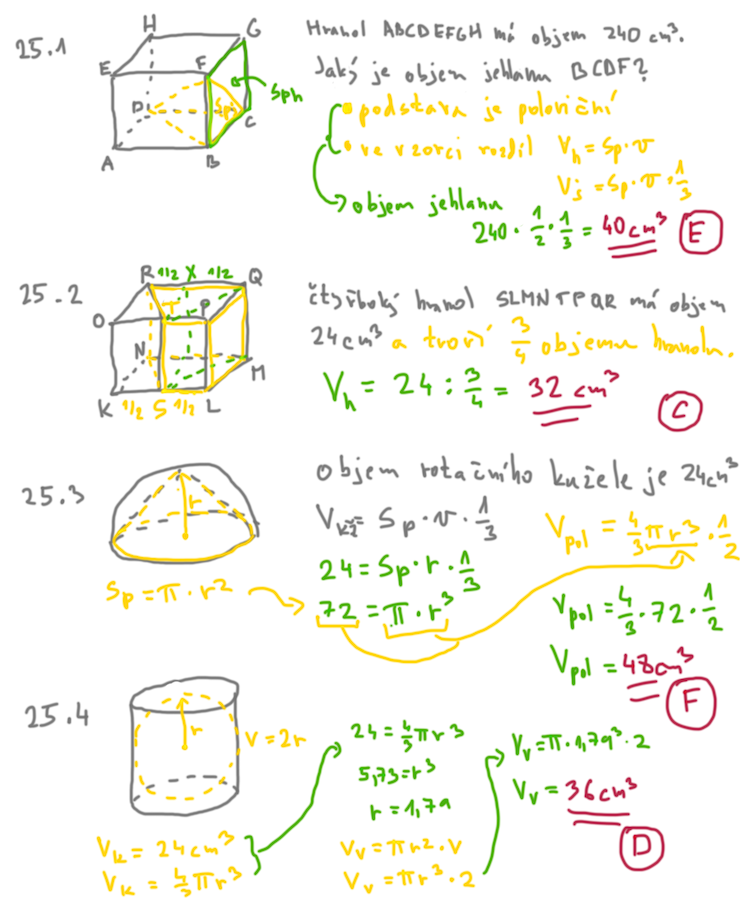 25.1
H
G
E
F
D
Sp
Sph
C
A
B
Hranol ABCDEFGH má objem 240 cm³.
Jaký je objem jehlanu BCDF?
• podstava je poloviční
• ve vzorci rozdíl Vh = Sp · v
Vj = Sp · v · 1/3
objem jehlanu
240 · 1/2 · 1/3 = 40 cm³ E
25.2
R 1/2 X 1/2 Q
O
T
P
N
M
K 1/2 S 1/2 L
čtyřboký hranol SLMNTPQR má objem
24 cm³ a tvoří 3/4 objemu hranolu.
Vh = 24 : 3/4 = 32 cm³ C
25.3
r
Sp = π · r²
Objem rotačního kužele je 24 cm³
Vkž = Sp · v · 1/3
24 = Sp · r · 1/3
72 = π · r³
Vpol = 4/3 π r³ · 1/2
Vpol = 4/3 · 72 · 1/2
Vpol = 48 cm³
F
25.4
r
v = 2r
Vk = 24 cm³
Vk = 4/3 π r³
24 = 4/3 π r³
5,73 = r³
r = 1,79
Vv = π r² · v
Vv = π r³ · 2
Vv = π · 1,79³ · 2
Vv = 36 cm³
D